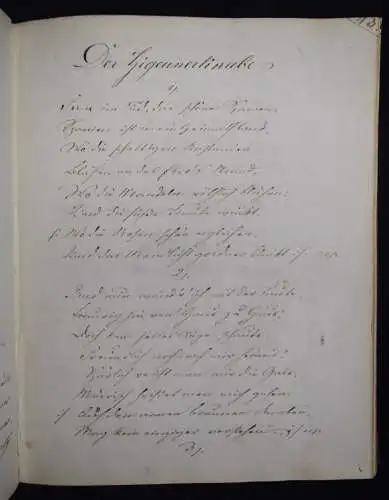 Der Zigeunerknabe
1)
Fern im Süd, das schöne Spanien,
Spanien ist mein Heimathland,
Wo die schattigen Kastanien
Blühen an des Ebro's Strand,
Wo die Mandeln röthlich blühen;
Und die süße Traube winkt.
Wo die Rosen schön erglühen,
Und das Mondlicht goldner blinkt
2).
Und nun wandr' ich mit der Laute
Traurig hier von Haus zu Haus;
Doch kein helles Auge schaute
Freundlich noch nach mir heraus:
Spärlich reicht man mir die Gabe,
Mürrisch heißet man mich gehen.
Ach den armen braunen Knaben
Mag kein einziger verstehen
3).